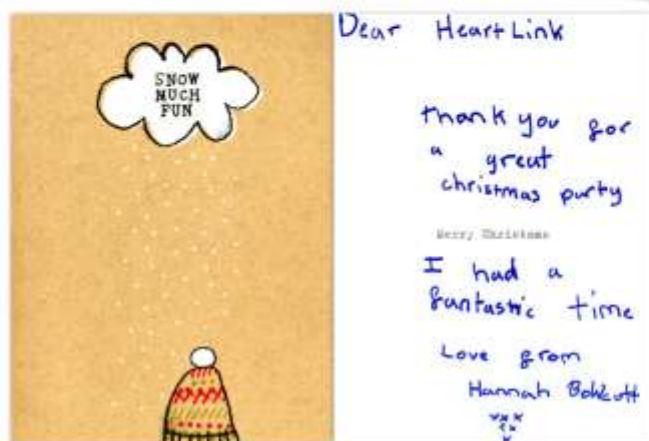 SNOW
MUCH
FUN
Dear HeartLink
thank you for
a great
christmas party
Merry Christmas
I had a
fantastic time
Love from
Hannah
xxx
xx
x